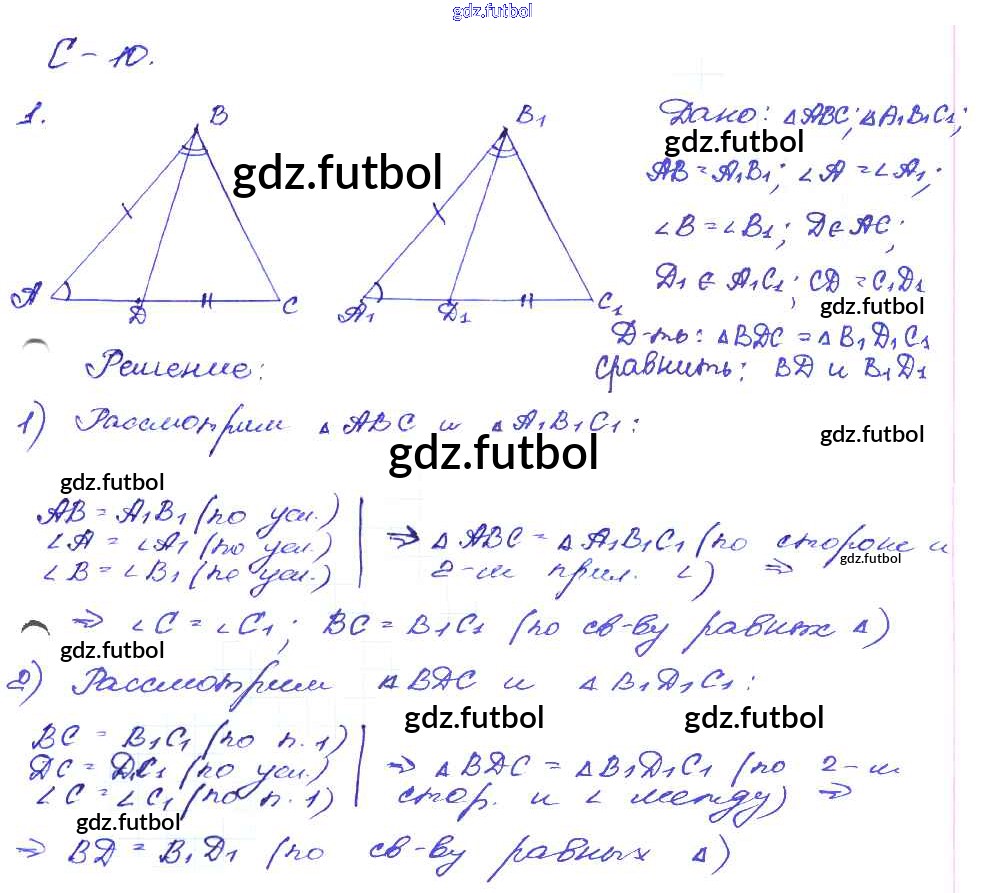 gdz.futbol
С-10.
1.
B
B1
A
D
C
A1
D1
C1
Дано: △ABC; △A1B1C1;
gdz.futbol
gdz.futbol
AB = A1B1; ∠A = ∠A1;
∠B = ∠B1; D∈AC;
D1 ∈ A1C1; CD = C1D1
gdz.futbol
Д-ть: △BDC = △B1D1C1
сравнить: BD и B1D1
Решение:
1) Рассмотрим △ABC и △A1B1C1:
gdz.futbol
gdz.futbol
gdz.futbol
AB = A1B1 (по усл.)
∠A = ∠A1 (по усл.)
∠B = ∠B1 (по усл.)
⇒ △ABC = △A1B1C1 (по стороне и
2-м прил. ∠) ⇒
gdz.futbol
⇒ ∠C = ∠C1; BC = B1C1 (по св-ву равных △)
gdz.futbol
2) Рассмотрим △BDC и △B1D1C1:
gdz.futbol
gdz.futbol
BC = B1C1 (по п. 1)
DC = D1C1 (по усл.)
∠C = ∠C1 (по п. 1)
⇒ △BDC = △B1D1C1 (по 2-м
стор. и ∠ между) ⇒
gdz.futbol
⇒ BD = B1D1 (по св-ву равных △)